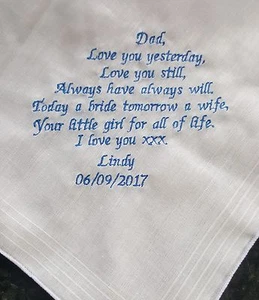 Dad,
Love you yesterday,
Love you still,
Always have always will.
Today a bride tomorrow a wife,
Your little girl for all of life.
I love you xxx.
Lindy
06/09/2017